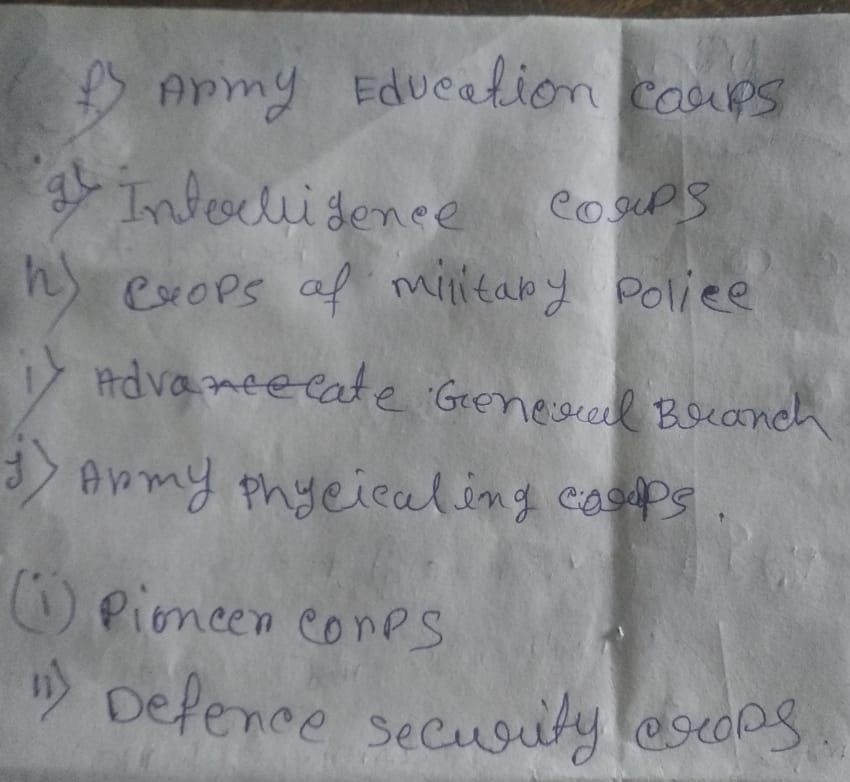 f) Army Education Corps
g) Intelligence corps
h) Crops of military police
i) Advancecate General Branch
j) Army phycicaling corps.
(i) Pioneer corps
ii) Defence security crops.